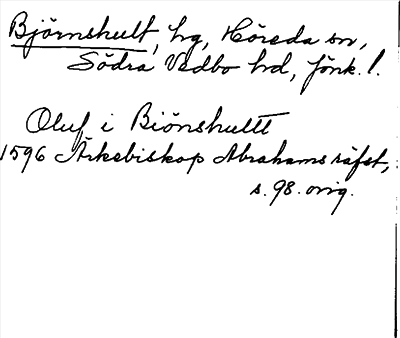 Björnshult, hg, Höreda sn,
Södra Vedbo hd, Jönk. l.
Oluf i Biönshultt
1596 Ärkebiskop Abrahams räfst,
s. 98. orig.